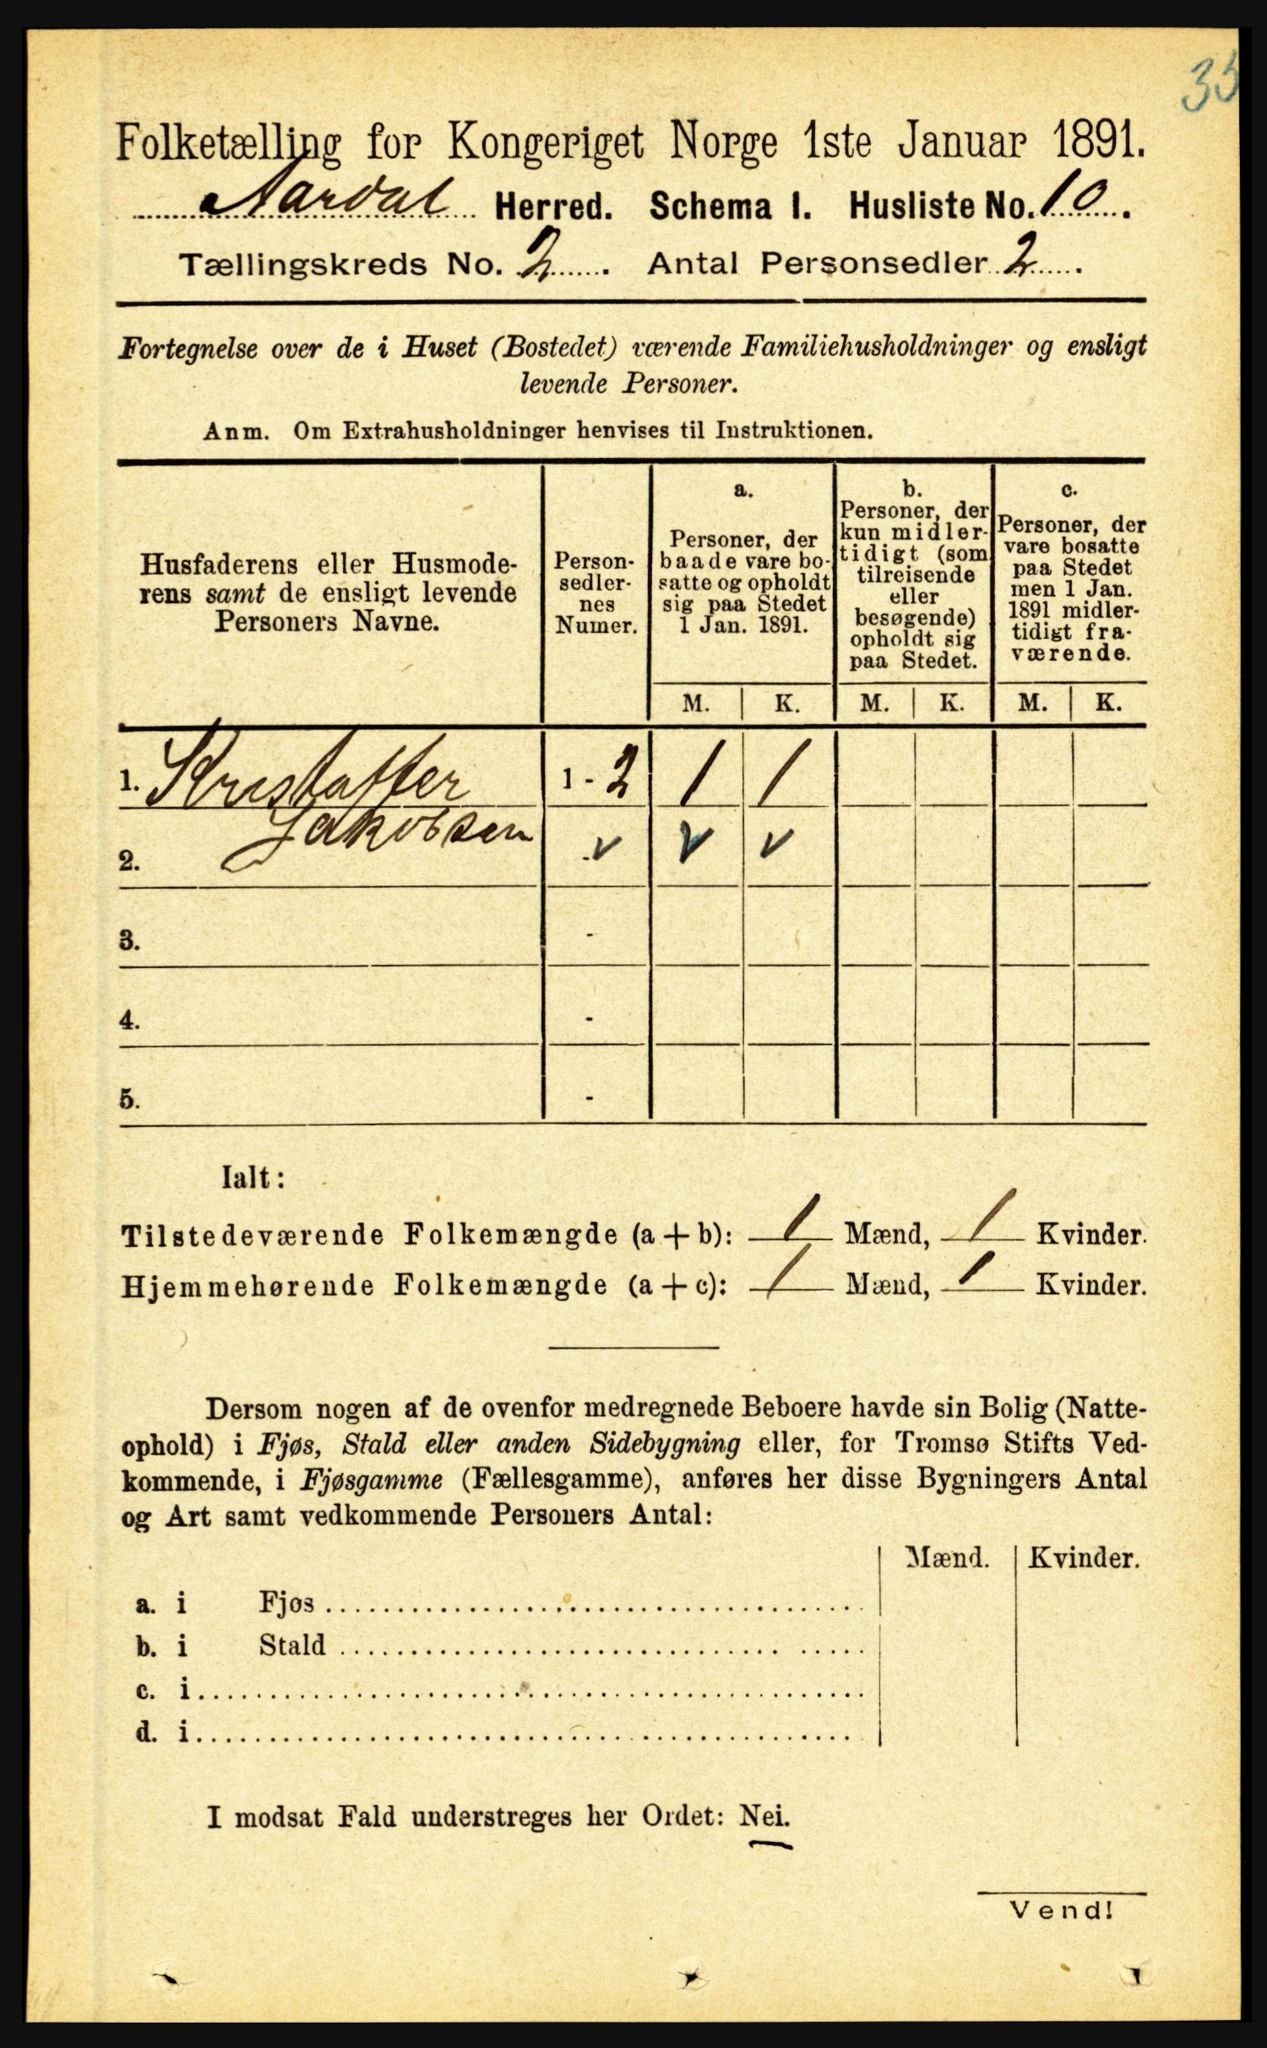 35
Folketælling for Kongeriget Norge 1ste Januar 1891.
Aardal Herred. Schema I. Husliste No. 10.
Tællingskreds No. 2. Antal Personsedler 2.
Fortegnelse over de i Huset (Bostedet) værende Familiehusholdninger og ensligt
levende Personer.
Anm. Om Extrahusholdninger henvises til Instruktionen.
Husfaderens eller Husmode-
rens samt de ensligt levende
Personers Navne.
Person-
sedler-
nes
Numer.
a.
Personer, der
baade vare bo-
satte og opholdt
sig paa Stedet
1 Jan. 1891.
b.
Personer, der
kun midler-
tidigt (som
tilreisende
eller
besøgende)
opholdt sig
paa Stedet.
c.
Personer, der
vare bosatte
paa Stedet
men 1 Jan.
1891 midler-
tidigt fra-
værende.
M. K. M. K. M. K.
1. Kristaffer 1 - 2 1 1
Jakobsen
2. - v v v
3. -
4. -
5. -
Ialt:
Tilstedeværende Folkemængde (a + b): 1 Mænd, 1 Kvinder.
Hjemmehørende Folkemængde (a + c): 1 Mænd, 1 Kvinder.
Dersom nogen af de ovenfor medregnede Beboere havde sin Bolig (Natte-
ophold) i Fjøs, Stald eller anden Sidebygning eller, for Tromsø Stifts Ved-
kommende, i Fjøsgamme (Fællesgamme), anføres her disse Bygningers Antal
og Art samt vedkommende Personers Antal:
Mænd. Kvinder.
a. i Fjøs
b. i Stald
c. i
d. i
I modsat Fald understreges her Ordet: Nei.
Vend!